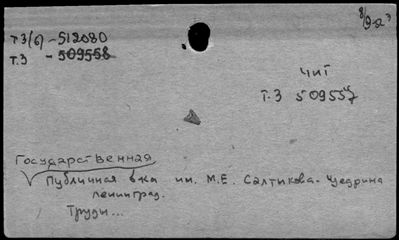 т3(6) - 512080
т.3 - 509558
чит
т.3 509557
Государственная
Публичная б-ка им. М.Е. Салтыкова-Щедрина
Ленинград.
Труды...